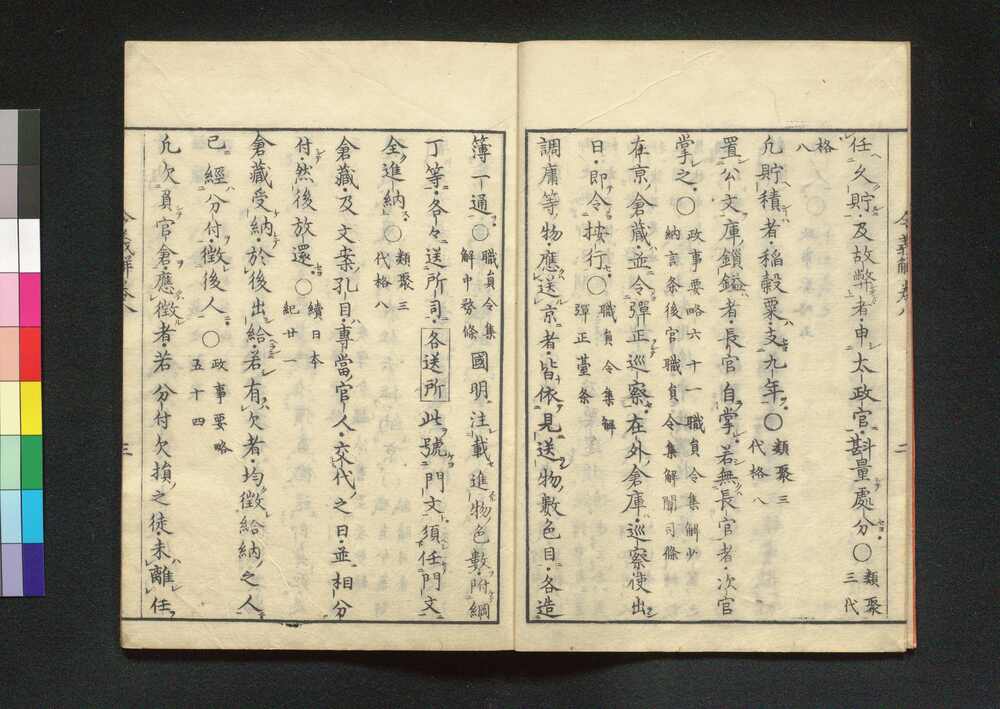 任久貯及故弊者申太政官斟量處分○類聚三代
格八
凢貯積者稲穀粟支九年○類聚三代格八
置公文庫鎖鎰者長官自掌若無長官者次官
掌之○政事要略六十一職員令集解少納言条後宮職員令集解闈司條
在京倉蔵並令彈正巡察在外倉庫巡察使出
日即令按行○職員令集解彈正䑓条
調庸等物應送京者皆依見送物數色目各造
簿一通○職員令集解中務條國明注載進物色數附綱
丁等各々送所司各送所此號門文須任門文
全進納○類聚三代格八
倉藏及文案孔目專當官人交代之日並相分
付然後放還○續日本紀廿一
倉藏受納於後出給若有欠者均徴給納之人
已經分付徴後人○政事要略五十四
凢欠負官倉應徴者若分付欠損之徒未離任
令義解巻八
二
三